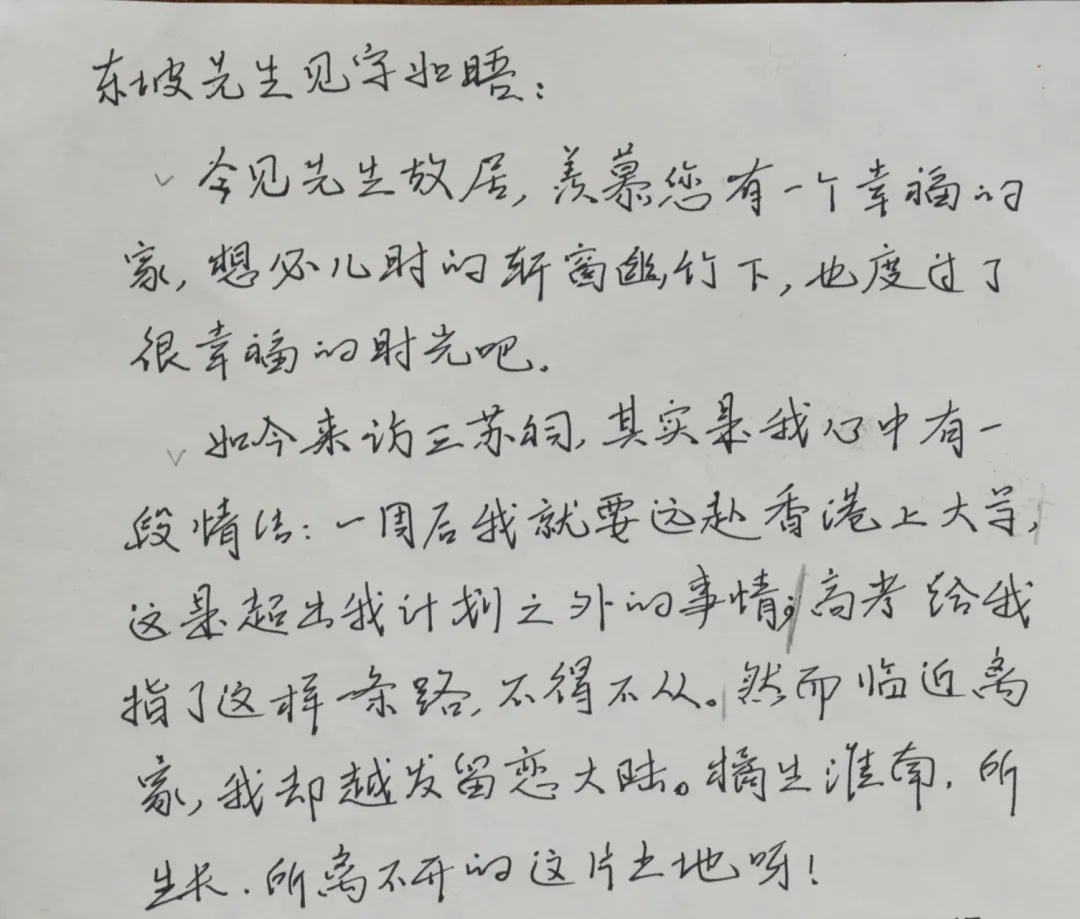 东坡先生见字如晤：
今见先生故居，羡慕您有一个幸福的
家，想必儿时的轩窗幽竹下，也度过了
很幸福的时光吧．
如今来访三苏祠，其实是我心中有一
段情结：一周后我就要远赴香港上大学，
这是超出我计划之外的事情；高考给我
指了这样一条路，不得不从。然而临近离
家，我却越发留恋大陆。橘生淮南．所
生长．所离不开的这片土地呀！